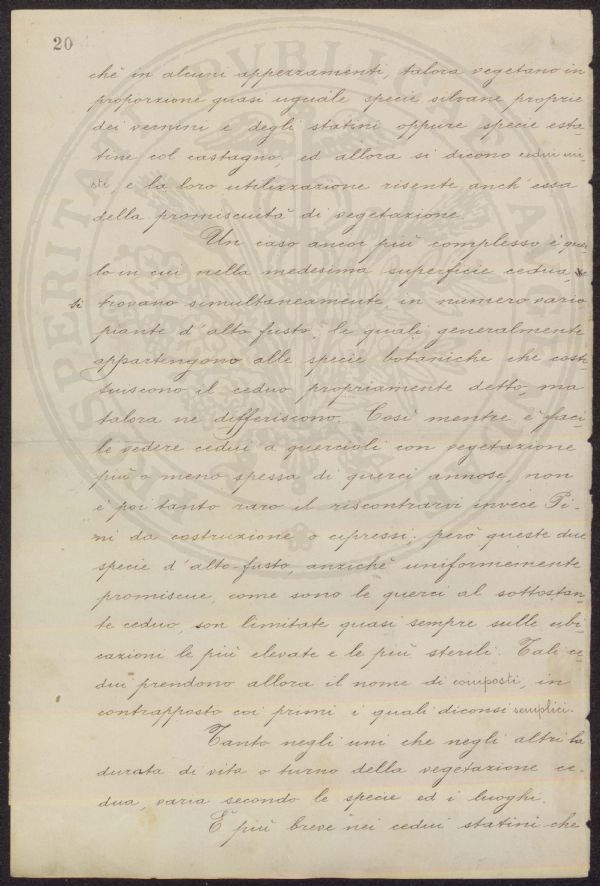 20
chè in alcuni appezzamenti, talora vegetano in
proporzione quasi uguale specie silvane proprie
dei vernini e degli statini oppure specie esta-
tine col castagno, ed allora si dicono cedui mi-
sti, e la loro utilizzazione risente anch'essa
della promiscuità di vegetazione.
Un caso ancor più complesso è quel-
lo in cui nella medesima superficie cedua, 
si trovano simultaneamente, in numero vario
piante d'alto fusto, le quali generalmente
appartengono alle specie botaniche che costi-
tuiscono il ceduo propriamente detto, ma
talora ne differiscono. Così mentre è faci-
le vedere cedui a quercioli con vegetazione
più o meno spessa di querci annose, non
è poi tanto raro il riscontrarvi invece Pi-
ni da costruzione o cipressi; però queste due
specie d'alto-fusto, anzichè uniformemente
promiscue, come sono le querci al sottostan-
te ceduo, son limitate quasi sempre sulle ubi-
cazioni le più elevate e le più sterili. Tali ce-
dui prendono allora il nome di composti, in
contrapposto coi primi i quali diconsi semplici.
Tanto negli uni che negli altri la
durata di vita o turno della vegetazione ce-
dua, varia secondo le specie ed i luoghi.
È più breve nei cedui statini che